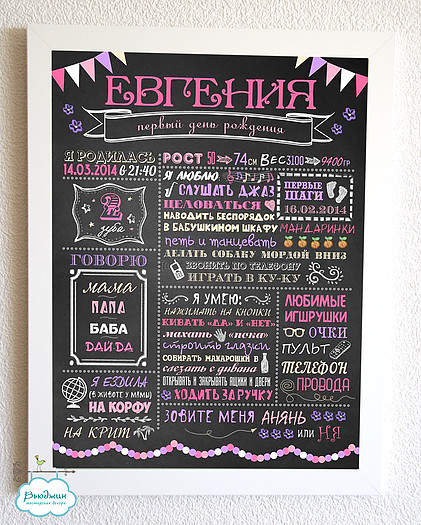 ЕВГЕНИЯ
первый день рождения
Я РОДИЛАСЬ
14.03.2014 в 21:40
РОСТ 50 74см ВЕС 3100 9400гр
Я ЛЮБЛЮ:
СЛУШАТЬ ДЖАЗ
ЦЕЛОВАТЬСЯ
НАВОДИТЬ БЕСПОРЯДОК
В БАБУШКИНОМ ШКАФУ
петь и танцевать
ДЕЛАТЬ СОБАКУ МОРДОЙ ВНИЗ
ЗВОНИТЬ ПО ТЕЛЕФОНУ
ИГРАТЬ В КУ-КУ
ПЕРВЫЕ
ШАГИ
16.02.2014
МАНДАРИНКИ
зуба
ГОВОРЮ
мама
ПАПА
БАБА
ДАЙ-ДА
Я УМЕЮ:
НАЖИМАТЬ НА КНОПКИ
КИВАТЬ "ДА" И "НЕТ"
махать "пока"
строить глазки
СОБИРАТЬ МАКАРОШКИ В
слезать с дивана
ОТКРЫВАТЬ И ЗАКРЫВАТЬ ЯЩИКИ И ДВЕРИ
ХОДИТЬ ЗА РУЧКУ
ЛЮБИМЫЕ
ИГРУШКИ
ОЧКИ
ПУЛЬТ
ТЕЛЕФОН
ПРОВОДА
Я ЕЗДИЛА
(В ЖИВОТЕ У МАМЫ)
НА КОРФУ
НА КРИТ
ЗОВИТЕ МЕНЯ АНЯНЬ
ИЛИ НЯ
Вьюджин
мастерская декора